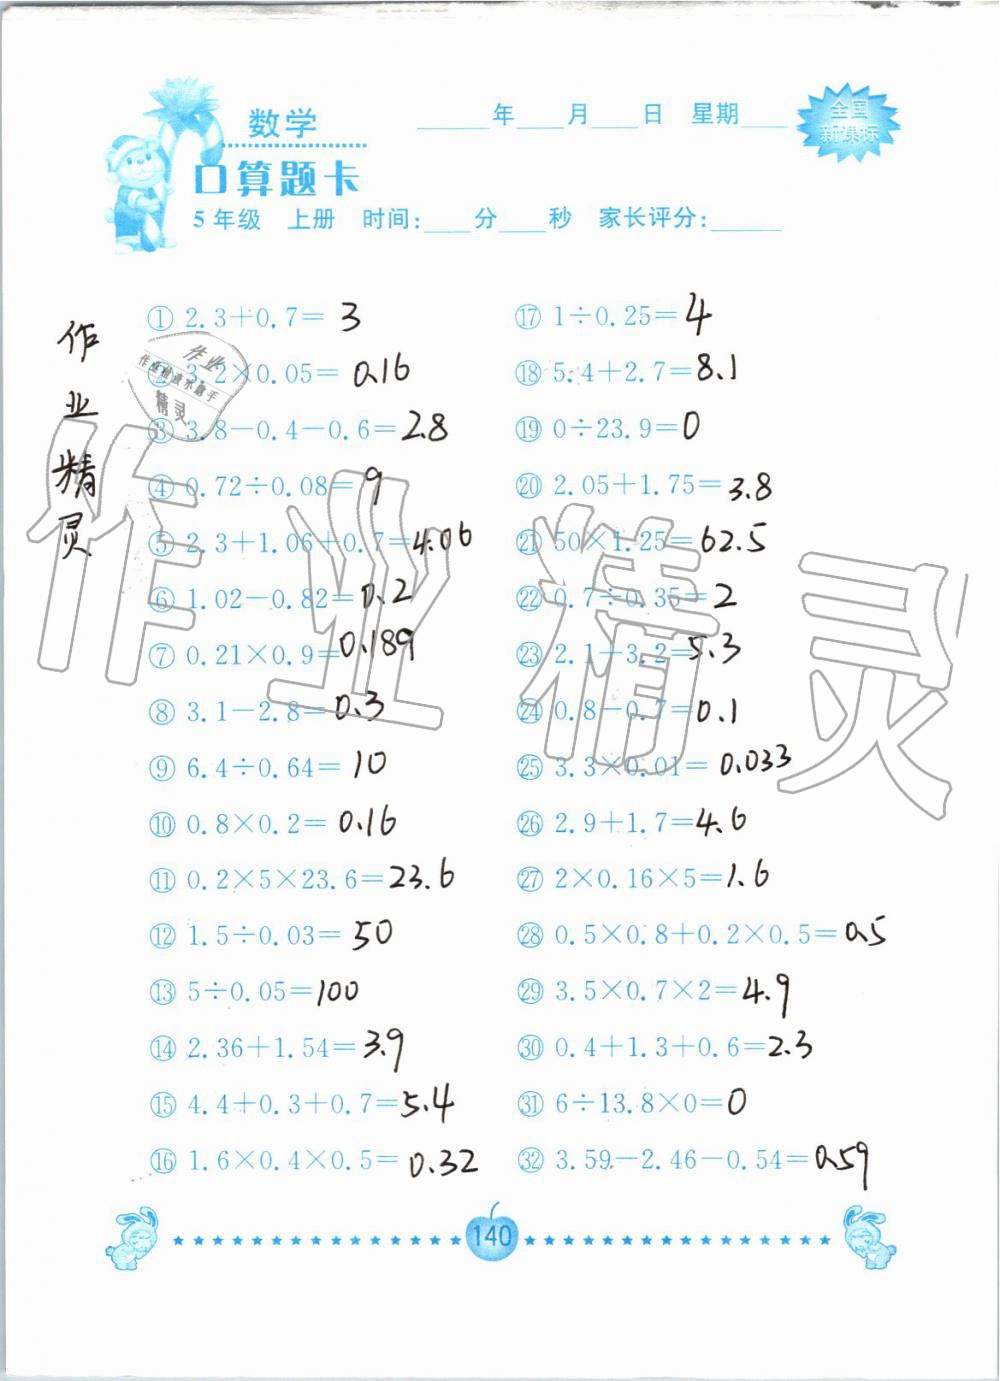 数学
____年____月____日 星期____
全国
新课标
口算题卡
5年级 上册 时间:____分____秒 家长评分:____
作业精灵
作业
作业检查小助手
精灵
① 2.3+0.7= 3
② 3.2×0.05= 0.16
③ 3.8-0.4-0.6= 2.8
④ 0.72÷0.08= 9
⑤ 2.3+1.06+0.7= 4.06
⑥ 1.02-0.82= 0.2
⑦ 0.21×0.9= 0.189
⑧ 3.1-2.8= 0.3
⑨ 6.4÷0.64= 10
⑩ 0.8×0.2= 0.16
⑪ 0.2×5×23.6= 23.6
⑫ 1.5÷0.03= 50
⑬ 5÷0.05= 100
⑭ 2.36+1.54= 3.9
⑮ 4.4+0.3+0.7= 5.4
⑯ 1.6×0.4×0.5= 0.32
⑰ 1÷0.25= 4
⑱ 5.4+2.7= 8.1
⑲ 0÷23.9= 0
⑳ 2.05+1.75= 3.8
㉑ 50×1.25= 62.5
㉒ 0.7÷0.35= 2
㉓ 2.1+3.2= 5.3
㉔ 0.8-0.7= 0.1
㉕ 3.3×0.01= 0.033
㉖ 2.9+1.7= 4.6
㉗ 2×0.16×5= 1.6
㉘ 0.5×0.8+0.2×0.5= 0.5
㉙ 3.5×0.7×2= 4.9
㉚ 0.4+1.3+0.6= 2.3
㉛ 6÷13.8×0= 0
㉜ 3.59-2.46-0.54= 0.59
作业精灵
140